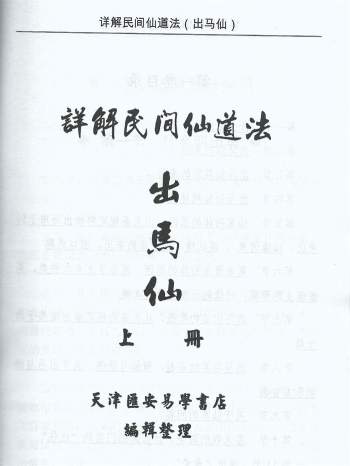 详解民间仙道法（出马仙）
詳解民间仙道法
出
馬
仙
上 冊
天津匯安易學書店
編輯整理